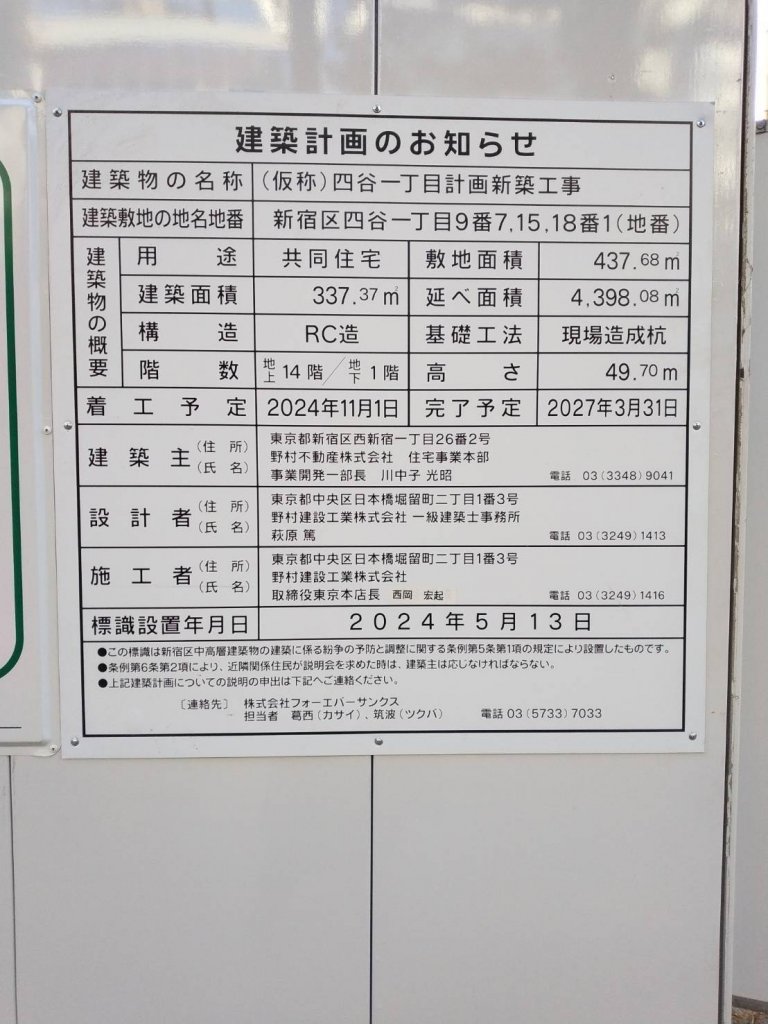 建築計画のお知らせ
建築物の名称 (仮称)四谷一丁目計画新築工事
建築敷地の地名地番 新宿区四谷一丁目9番7,15,18番1(地番)
建築物の概要
用途 共同住宅 敷地面積 437.68㎡
建築面積 337.37㎡ 延べ面積 4,398.08㎡
構造 RC造 基礎工法 現場造成杭
階数 地上14階/地下1階 高さ 49.70m
着工予定 2024年11月1日 完了予定 2027年3月31日
建築主(住所)(氏名)
東京都新宿区西新宿一丁目26番2号
野村不動産株式会社 住宅事業本部
事業開発一部長 川中子 光昭 電話 03(3348)9041
設計者(住所)(氏名)
東京都中央区日本橋堀留町二丁目1番3号
野村建設工業株式会社 一級建築士事務所
萩原 篤 電話 03(3249)1413
施工者(住所)(氏名)
東京都中央区日本橋堀留町二丁目1番3号
野村建設工業株式会社
取締役東京本店長 西岡 宏起 電話 03(3249)1416
標識設置年月日 2024年5月13日
●この標識は新宿区中高層建築物の建築に係る紛争の予防と調整に関する条例第5条第1項の規定により設置したものです。
●条例第6条第2項により、近隣関係住民が説明会を求めた時は、建築主は応じなければならない。
●上記建築計画についての説明の申出は下記へご連絡ください。
〔連絡先〕 株式会社フォーエバーサンクス
担当者 葛西(カサイ)、筑波(ツクバ) 電話03(5733)7033